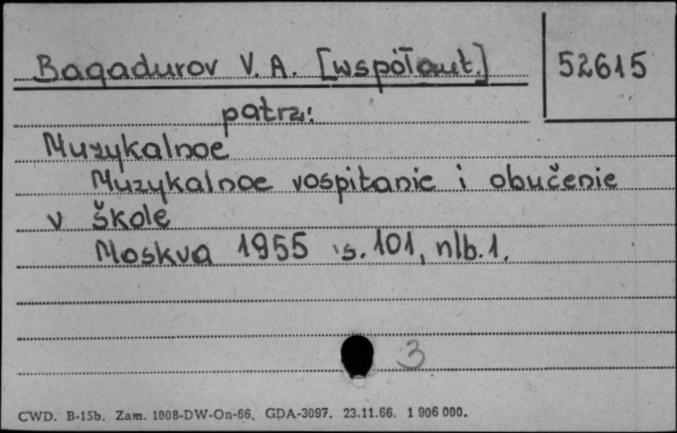 Bagadurov V. A. [współaut.]
52615
patrz:
Muzykalnoe
Muzykalnoe vospitanie i obučenie
v škole
Moskva 1955 s. 101, nlb. 1.
3
CWD. B-15b. Zam. 1008-DW-On-66. GDA-3097. 23.11.66. 1 906 000.